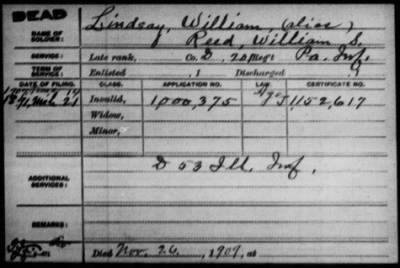 DEAD
NAME OF SOLDIER:
Lindsay, William (alias)
Reed, William S.
SERVICE:
Late rank, Co. D, 20 Reg't Pa. Inf.
TERM OF SERVICE:
Enlisted , 1 Discharged , 1
DATE OF FILING. CLASS. APPLICATION NO. LAW. CERTIFICATE NO.
1891, Mch 21 Invalid, 1,000,375 1,152,617
Widow,
Minor,
ADDITIONAL SERVICES:
D 53 Ill. Inf.
REMARKS:
Died Nov. 26, 1909, at